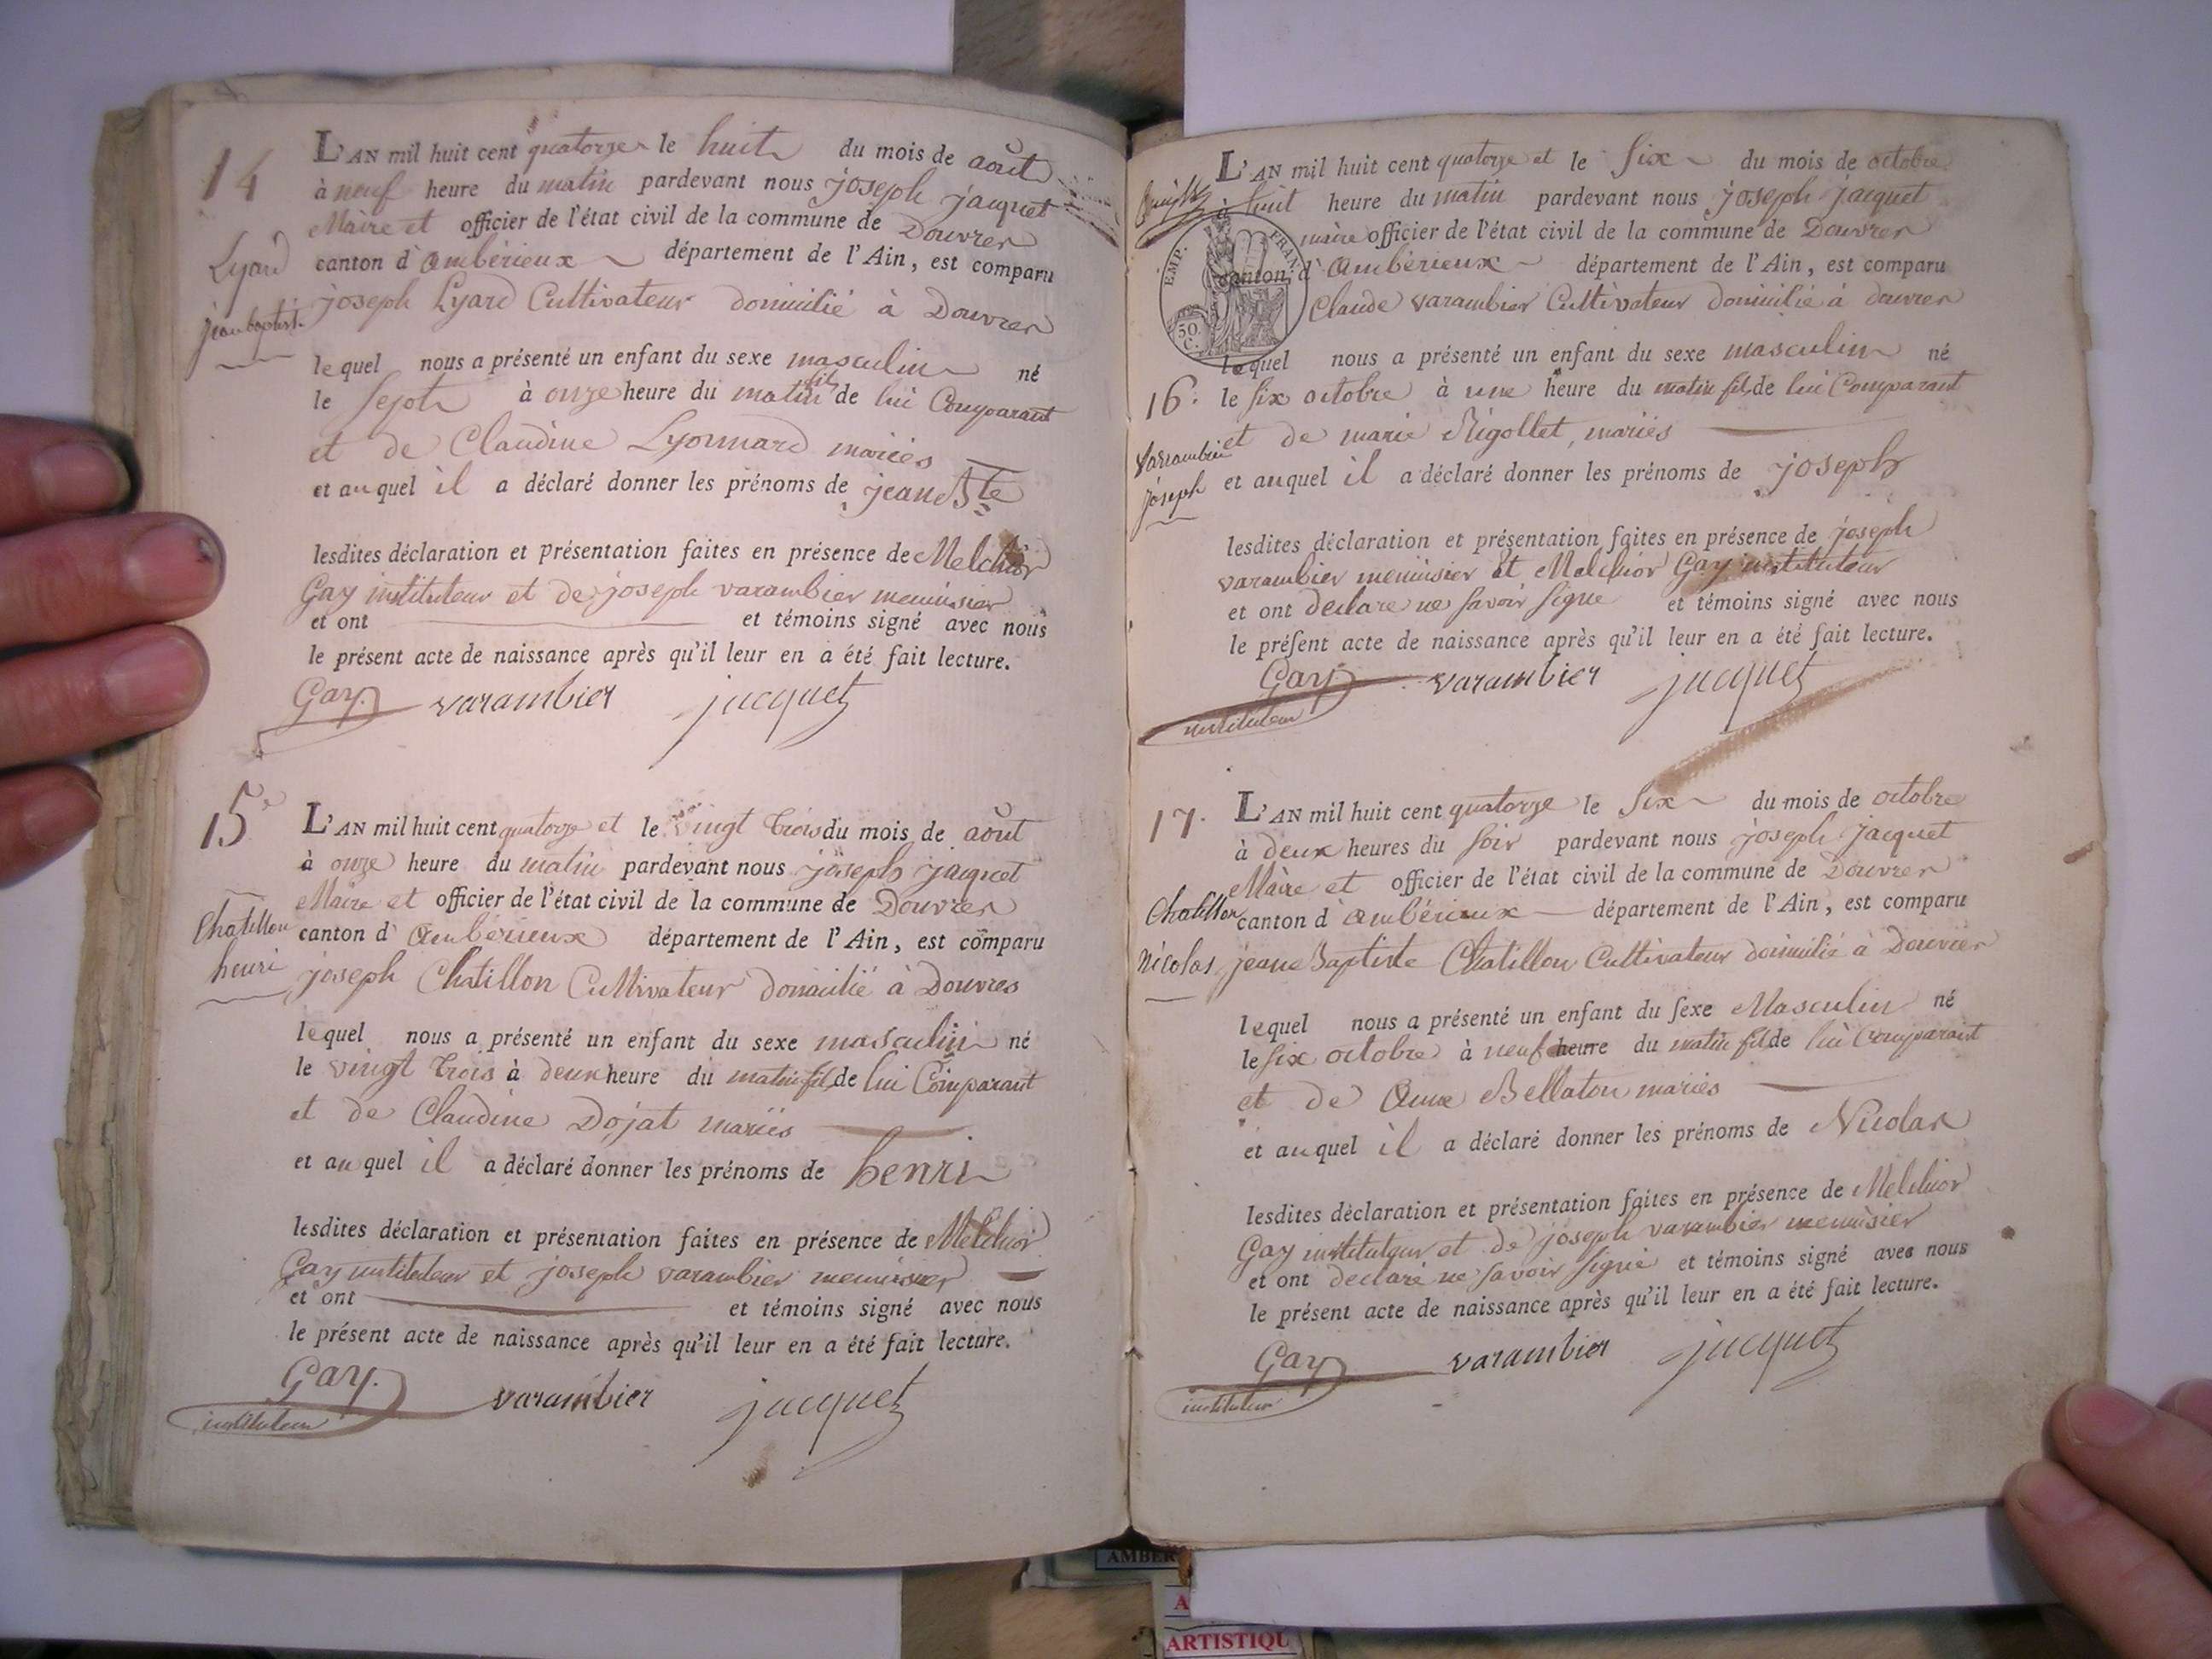 14
L'AN mil huit cent quatorze le huit du mois de août
à neuf heure du matin pardevant nous joseph jacquet
Maire et officier de l'état civil de la commune de Douvres
Lyard
canton d'ambérieux département de l'Ain, est comparu
joseph Lyard Cultivateur domicilié à Douvres
jean baptiste
lequel nous a présenté un enfant du sexe masculin né
le sept à onze heure du matin fils de lui Comparant
et de Claudine Lyonnard mariés
et auquel il a déclaré donner les prénoms de jean Bte
lesdites déclaration et présentation faites en présence de Melchior
Gay instituteur et de joseph varambier menuisier
et ont et témoins signé avec nous
le présent acte de naissance après qu'il leur en a été fait lecture.
Gay varambier jacquet
15e
L'AN mil huit cent quatorze et le vingt trois du mois de août
à onze heure du matin pardevant nous joseph jacquet
Maire et officier de l'état civil de la commune de Douvres
Chatillon
canton d'ambérieux département de l'Ain, est comparu
henri
joseph Chatillon Cultivateur domicilié à Douvres
lequel nous a présenté un enfant du sexe masculin né
le vingt trois à deux heure du matin fils de lui Comparant
et de Claudine Dojat mariés
et auquel il a déclaré donner les prénoms de henri
lesdites déclaration et présentation faites en présence de Melchior
Gay instituteur et joseph varambier menuisier
et ont et témoins signé avec nous
le présent acte de naissance après qu'il leur en a été fait lecture.
Gay. varambier jacquet
instituteur
L'AN mil huit cent quatorze et le six du mois de octobre
à huit heure du matin pardevant nous joseph jacquet
maire officier de l'état civil de la commune de Douvres
EMP. FRAN.
50 C.
canton d'ambérieux département de l'Ain, est comparu
Claude varambier Cultivateur domicilié à douvres
lequel nous a présenté un enfant du sexe masculin né
16. le six octobre à une heure du matin fils de lui Comparant
et de marie Rigollet, mariés
varrambier
joseph
et auquel il a déclaré donner les prénoms de joseph
lesdites déclaration et présentation faites en présence de joseph
varambier menuisier et Melchior Gay instituteur
et ont declare ne savoir signe et témoins signé avec nous
le présent acte de naissance après qu'il leur en a été fait lecture.
Gay varambier jacquet
instituteur
17.
L'AN mil huit cent quatorze le six du mois de octobre
à deux heures du soir pardevant nous joseph jacquet
Maire et officier de l'état civil de la commune de Douvres
Chatillon
canton d'ambérieux département de l'Ain, est comparu
nicolas
jean Baptiste Chatillon Cultivateur domicilié à Douvres
lequel nous a présenté un enfant du sexe Masculin né
le six octobre à neuf heure du matin fils de lui Comparant
et de Anne Bellaton mariés
et auquel il a déclaré donner les prénoms de Nicolas
lesdites déclaration et présentation faites en présence de Melchior
Gay instituteur et de joseph varambier menuisier
et ont declaré ne savoir signé et témoins signé avec nous
le présent acte de naissance après qu'il leur en a été fait lecture.
Gay varambier jacquet
instituteur
AMBER
A
ARTISTIQU